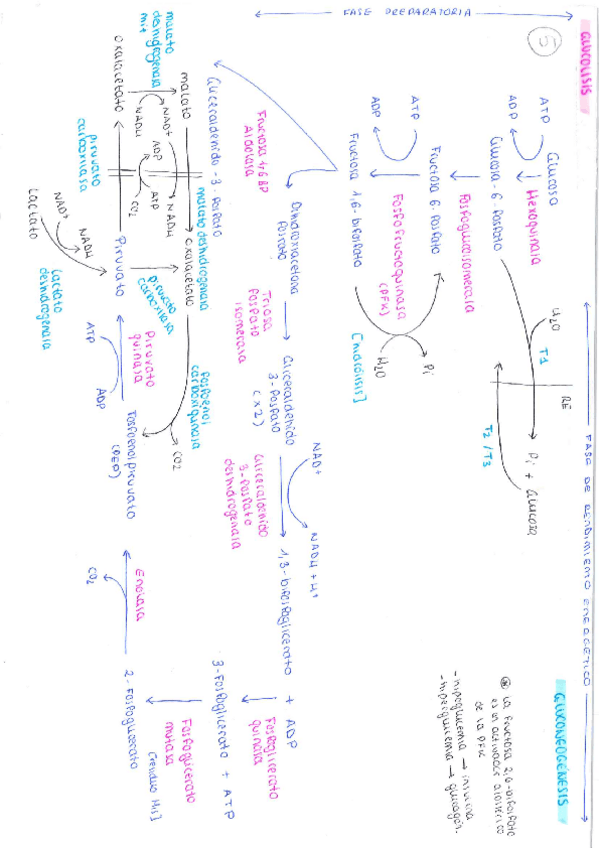 GLUCOLISIS
GLUCONEOGÉNESIS
FASE PREPARATORIA
FASE DE RENDIMIENTO ENERGÉTICO
5
Glucosa
ATP
ADP
Hexoquinasa
H2O
T1
RE
Pi + Glucosa
T2 / T3
Glucosa-6-fosfato
Fosfoglucoisomerasa
Fructosa 6-fosfato
ATP
ADP
Fosfofructoquinasa
(PFK)
H2O
Pi
[
Fructosa 1,6-bifosfato
Fructosa 1,6 BP
Aldolasa
Gliceraldehido-3-fosfato
Dihidroxiacetona
fosfato
Triosa
fosfato
isomerasa
Gliceraldehido
3-fosfato
(x2)
NAD+
NADH + H+
Gliceraldehido
3-fosfato
deshidrogenasa
1,3-bifosfoglicerato + ADP
Fosfoglicerato
quinasa
3-fosfoglicerato + ATP
Fosfoglicerato
mutasa
[residuo His]
2-fosfoglicerato
Enolasa
CO2
Fosfoenolpiruvato
(PEP)
ADP
ATP
Piruvato
quinasa
Piruvato
NADH
NAD+
Lactato
Lactato
deshidrogenasa
Piruvato
carboxilasa
ATP
CO2
ADP
Piruvato
carboxilasa
Oxalacetato
NADH
NAD+
malato
deshidrogenasa
mit
malato
NAD+
NADH
malato deshidrogenasa
Oxalacetato
Fosfoenol
carboxiquinasa
CO2
* La fructosa 2,6-bifosfato
es un activador alostérico
de la PFK
- hipeglucemia → insulina
- hiperglucemia → glucagón.